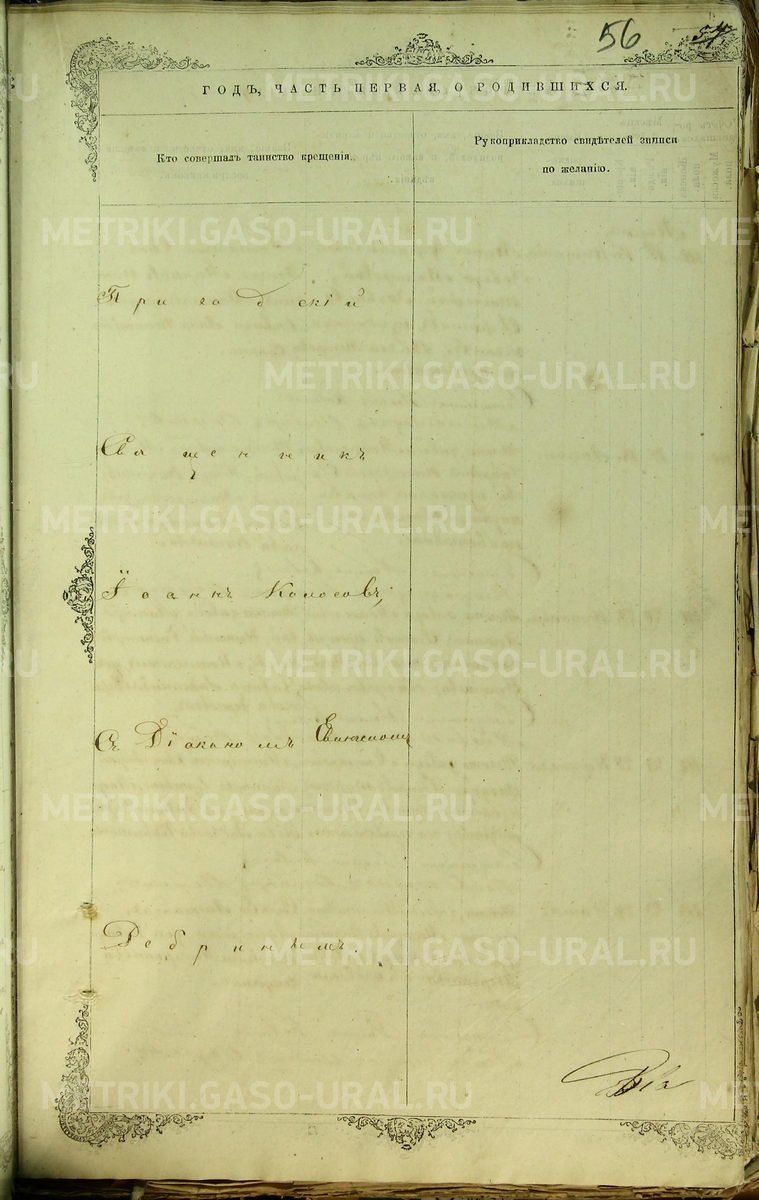 56 57
ГОДЪ, ЧАСТЬ ПЕРВАЯ, О РОДИВШИХСЯ.
Кто совершалъ таинство крещенія.
Рукоприкладство свидѣтелей записи
по желанію.
METRIKI.GASO-URAL.RU
Приходскій
METRIKI.GASO-URAL.RU
Священникъ
METRIKI.GASO-URAL.RU
Іоаннъ Колосовъ,
METRIKI.GASO-URAL.RU
Съ Діакономъ
METRIKI.GASO-URAL.RU
METRIKI.GASO-URAL.RU
METRIKI.GASO-URAL.RU